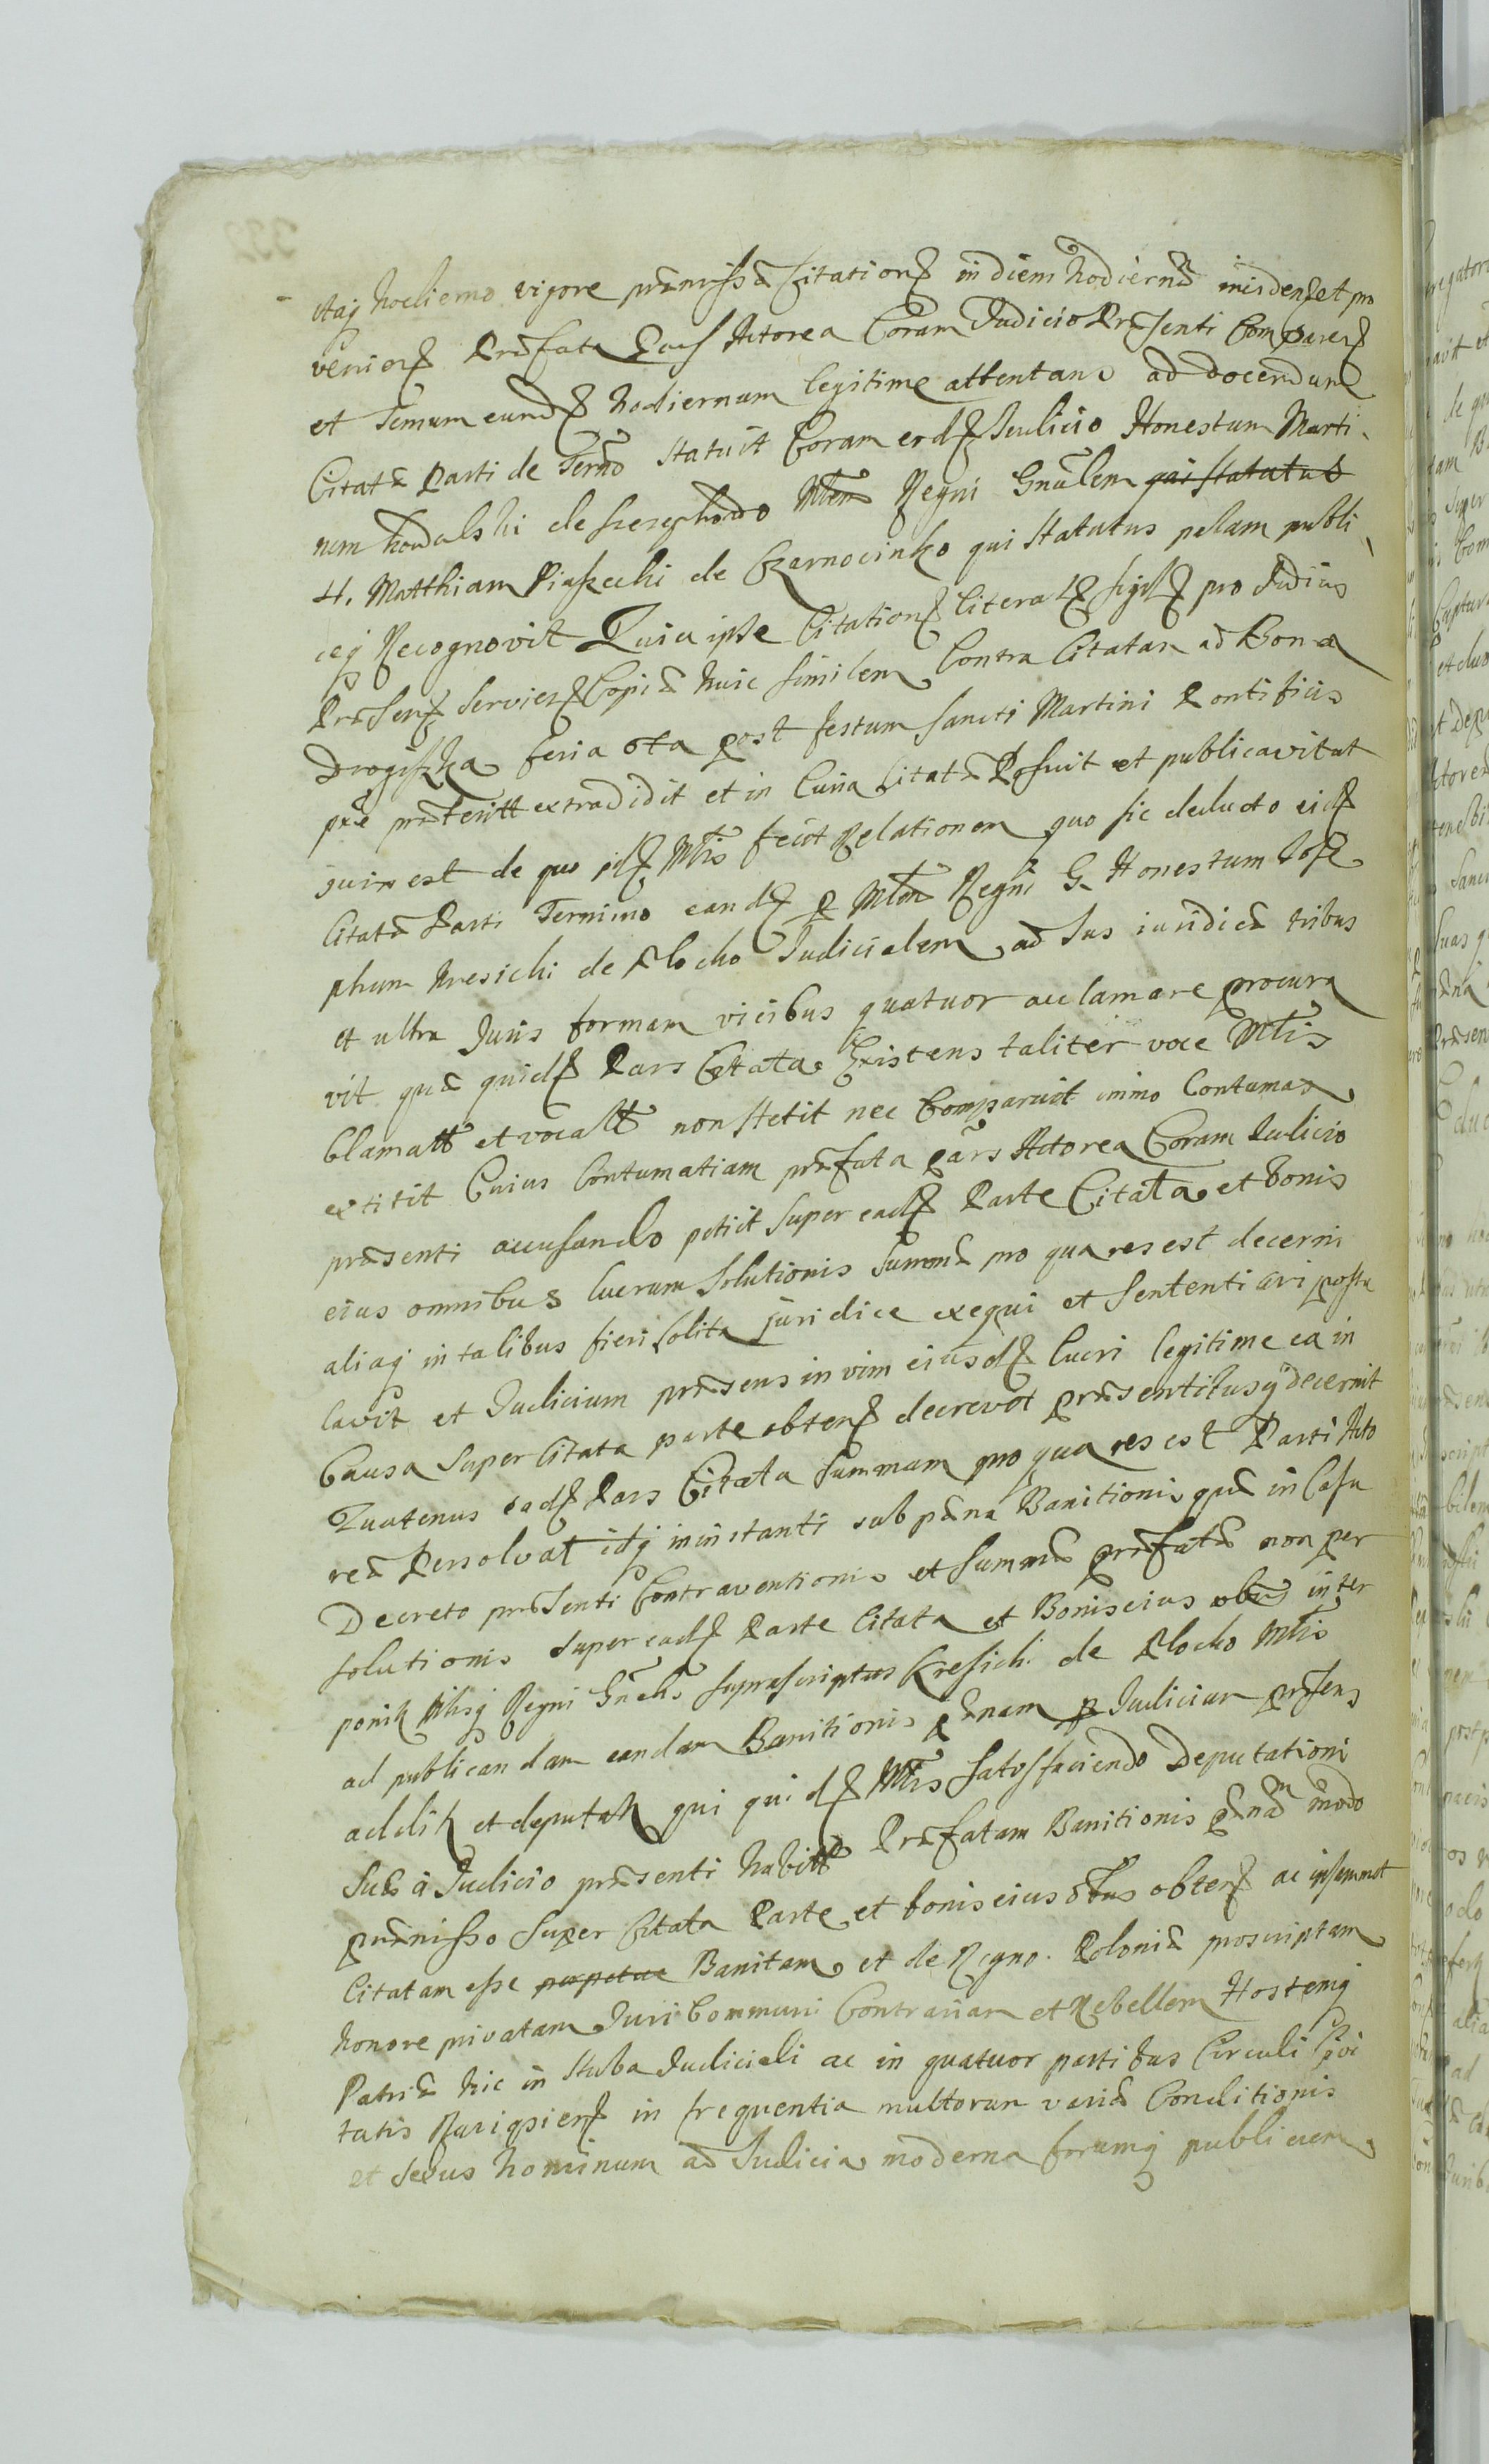 itaq hodierno vigore præmissæ Citationę in diem hodiernū inciden et pro
venien Præfata Pars Actorea Coram Judicio Præsenti Comparen
et Termum eund hodiernum legitime attentans ad docendum
Citatæ Parti de Termo statuit Coram eod Judicio Honestum Marti
num Kowalski de Mtem Regni Gnālem qui statutus
H. Matthiam Piaszecki de Czarnocinko qui statutus palam publi
ceq Recognovit Quia ipse Citation litera sigil pro Judicio
Præsen servien Copiæ huic similem Contra Citatam ad Bona
Drogiszka feria 6ta post festum Sancti Martini Pontificis
pxe præterit extradidit et in Curia Citatæ Posuit et publicavit ut
juris est de quo id Mtis fecit Relationem quo sic deducto eid
Citatæ Parti Termino eand p Mtem Regni G. Honestum Jose
phum Kresicki de Plocko Judicialem ad Jus iuridicæ tribus
et ultra Juris formam vicibus quatuor acclamare procura
vit quæ quid Pars Citata Existens taliter voce Mtis
Clamatt et vocatt non stetit nec Comparuit immo Contumax
extitit Cuius Contumatiam præfata pars Actorea Coram Judicio
præsenti accusando petiit super ead Parte Citata et bonis
eius omnibus lucrum solutionis Summæ pro qua res est decerni
aliaq in talibus fieri solita juridice exequi et sententiari postu
lavit et Judicium præsens in vim eiusd lucri legitime ea in
Causa super Citata parte obten decrevit præsentibusq decernit
Quatenus ead Pars Citata Summam pro qua res est Parti Acto
reæ Persolvat idq in instanti sub pæna Banitionis quæ in Casu
Decreto præsenti Contraventionis et Summæ præfatæ non per
solutionis super ead Parte Citata et Bonis eius obs inter
ponit Mtisq Regni Gnelis suprascriptus Kresicki de Plocko Mtis
ad publicandam eandam Banitionis pænam p Judicium præsens
addit et deputat qui quid Mtis satisfaciendo Deputationi
Suæ à Judicio præsenti habitt Præfatam Banitionis pænam modo
præmisso super Citata Parte et bonis eius obus obten ac ipsammet
Citatam esse perpetue Banitam et de Regno Poloniæ proscriptam
honore privatam Juri Communi Contrariam et Rebellem Hostemq
Patriæ hic in stuba Judiciali ac in quatuor partibus Circuli Civi
tatis Raciąsien in frequentia multorum variæ Conditionis
et sexus hominum ad Judicia moderna forumq publicum